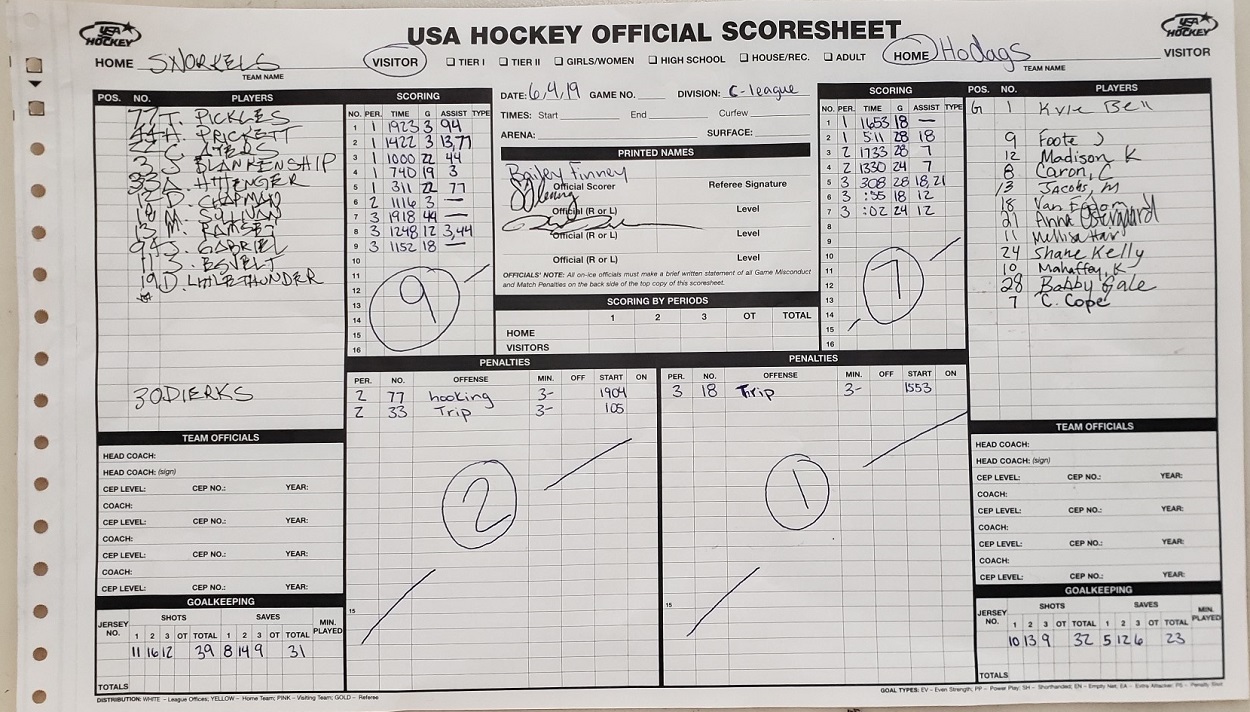 USA HOCKEY OFFICIAL SCORESHEET
USA HOCKEY
USA HOCKEY
HOME SNORKELS VISITOR
TEAM NAME
☐ TIER I ☐ TIER II ☐ GIRLS/WOMEN ☐ HIGH SCHOOL ☐ HOUSE/REC. ☐ ADULT
HOME Hodags VISITOR
TEAM NAME
POS. NO. PLAYERS
77 T. PICKLES
44 H. PRICKETT
3 S. BLANKENSHIP
33 A. HITTENGER
12 D. CHAPMAN
18 M. SULLIVAN
13 M. RAMSEY
94 J. GABRIEL
11 S. ESVELT
19 D. LITTLETHUNDER
30 DIERKS
SCORING
NO. PER. TIME G ASSIST TYPE
1 1 1923 3 94
2 1 1422 3 13,77
3 1 1000 22 44
4 1 740 19 3
5 1 311 22 77
6 2 1116 3 —
7 3 1918 44 —
8 3 1248 12 3,44
9 3 1152 18 —
10
11
12
13
14
15
16
9
DATE: 6,4,19 GAME NO. DIVISION: C-league
TIMES: Start End Curfew
ARENA: SURFACE:
PRINTED NAMES
Bailey Finney
Official Scorer Referee Signature
Official (R or L) Level
Official (R or L) Level
Official (R or L) Level
OFFICIALS' NOTE: All on-ice officials must make a brief written statement of all Game Misconduct
and Match Penalties on the back side of the top copy of this scoresheet.
SCORING BY PERIODS
1 2 3 OT TOTAL
HOME
VISITORS
SCORING
NO. PER. TIME G ASSIST TYPE
1 1 1653 18 —
2 1 511 28 18
3 2 1733 28 7
4 2 1330 24 7
5 3 308 28 18,21
6 3 :55 18 12
7 3 :02 24 12
8
9
10
11
12
13
14
15
16
7
POS. NO. PLAYERS
G 1 Kyle Bell
9 Foote J
12 Madison K
8 Caron, C
13 Jacobs, M
18 Van
21 Anna
11 Mellisa
24 Shane Kelly
10 Mahaffey, K
28 Bobby Gale
7 C. Cope
PENALTIES
PER. NO. OFFENSE MIN. OFF START ON
2 77 hooking 3- 1904
2 33 Trip 3- 105
2
15
PENALTIES
PER. NO. OFFENSE MIN. OFF START ON
3 18 Trip 3- 1553
1
15
TEAM OFFICIALS
HEAD COACH:
HEAD COACH: (sign)
CEP LEVEL: CEP NO.: YEAR:
COACH:
CEP LEVEL: CEP NO.: YEAR:
COACH:
CEP LEVEL: CEP NO.: YEAR:
COACH:
CEP LEVEL: CEP NO.: YEAR:
GOALKEEPING
JERSEY NO. SHOTS SAVES MIN. PLAYED
1 2 3 OT TOTAL 1 2 3 OT TOTAL
11 16 12 39 8 14 9 31
TOTALS
TEAM OFFICIALS
HEAD COACH:
HEAD COACH: (sign)
CEP LEVEL: CEP NO.: YEAR:
COACH:
CEP LEVEL: CEP NO.: YEAR:
COACH:
CEP LEVEL: CEP NO.: YEAR:
COACH:
CEP LEVEL: CEP NO.: YEAR:
GOALKEEPING
JERSEY NO. SHOTS SAVES MIN. PLAYED
1 2 3 OT TOTAL 1 2 3 OT TOTAL
10 13 9 32 5 12 6 23
TOTALS
DISTRIBUTION: WHITE – League Offices; YELLOW – Home Team; PINK – Visiting Team; GOLD – Referee
GOAL TYPES: EV – Even Strength; PP – Power Play; SH – Shorthanded; EN – Empty Net; EA – Extra Attacker; PS – Penalty Shot